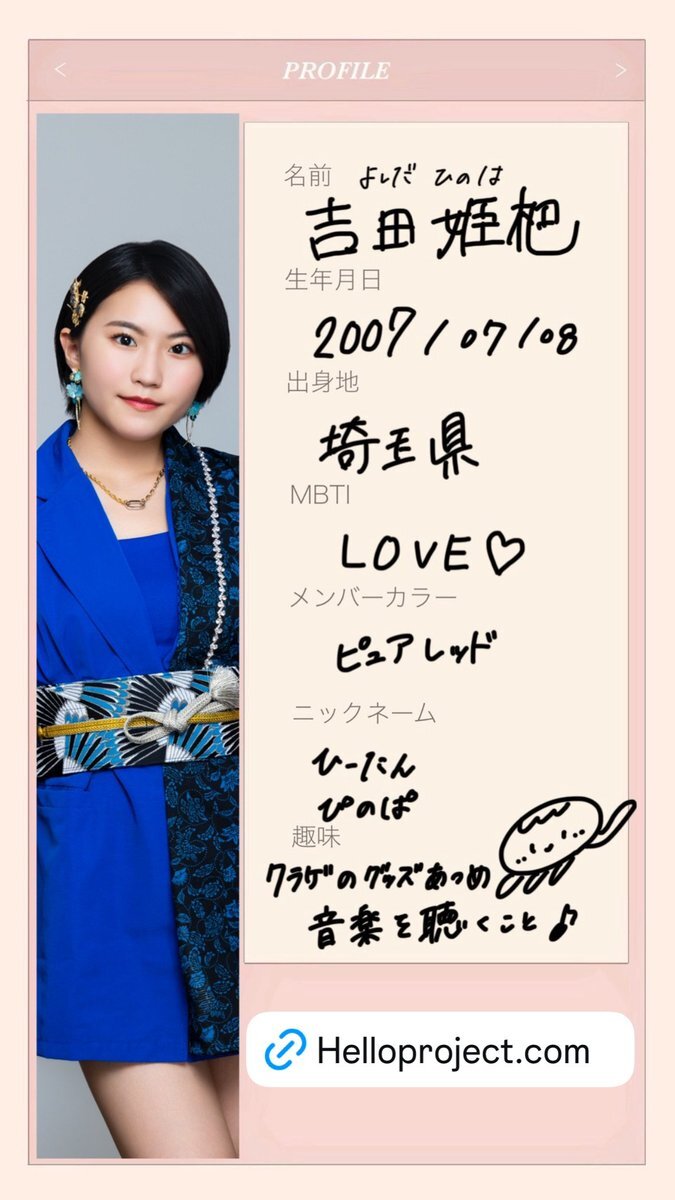 < PROFILE >
名前 よしだ ひのは
吉田姫杷
生年月日
2007/07/08
出身地
埼玉県
MBTI
LOVE♡
メンバーカラー
ピュアレッド
ニックネーム
ひーたん
ぴのぱ
趣味
クラゲのグッズあつめ
音楽を聴くこと♪
Helloproject.com